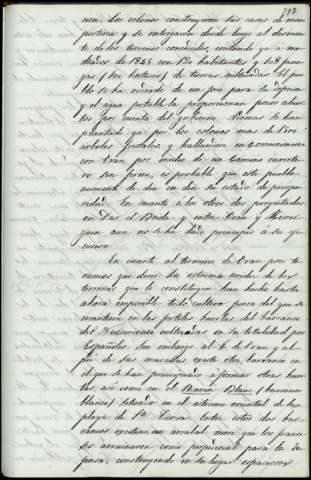 792
cion. Los colonos construyeron sus casas de mam
posteria y se entregaron desde luego al desmon
te de los terrenos concedidos, contando ya a me
diados de 1849 con 120 habitantes y 108 fane
gas (son hectareas) de tierras cultivadas. El pue
blo se ha cercado de un foso para la defensa
y el agua potable la proporcionan pozos abier
tos por cuenta del gobierno. Ademas se han
plantado ya por los colonos mas de 1200
arboles frutales, y hallandose en comunicacion
con Oran por medio de un camino carrete
ro son firme, es probable que este pueblo
aumente de dia en dia su estado de prospe
ridad. En cuanto á los otros dos proyectados
en Dar el Beida y entre Oran y Miser
guin aun no se ha dado principio á su eje
cucion.
En cuanto al termino de Oran poco te
nemos que decir. La estrema aridez de los
terrenos que le constituyen han hecho hasta
ahora imposible todo cultivo fuera del que se
mantiene en las fertiles huertas del barranco
del Nacimiento cultivadas en su totalidad por
Españoles. Sin embargo al E. de Oran y al
pié de sus murallas existe otro barranco en
el que se han principiado a formar otras huer
tas, asi como en el Ravin Blanc (barranco
blanco) situado en el estremo oriental de la
playa de Sta. Teresa. Entre estos dos bar
rancos existia un arrabal moro que los france
ses arruinaron como perjudicial para la de
fensa, construyendo en su lugar espaciosos